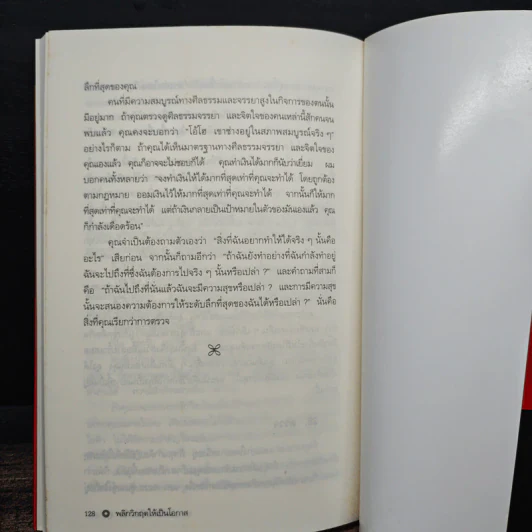 ลึกที่สุดของคุณ
คนที่มีความสมบูรณ์ทางศีลธรรมและจรรยาสูงในกิจการของตนนั้น
มีอยู่มาก ถ้าคุณตรวจดูศีลธรรมจรรยา และจิตใจของคนเหล่านี้สักคนจน
พบแล้ว คุณคงจะบอกว่า "โอ้โฮ เขาช่างอยู่ในสภาพสมบูรณ์จริง ๆ"
อย่างไรก็ตาม ถ้าคุณได้เห็นมาตรฐานทางศีลธรรมจรรยา และจิตใจของ
คุณเองแล้ว คุณก็อาจจะไม่ชอบก็ได้ คุณทำเงินได้มากก็นับว่าเยี่ยม ผม
บอกคนทั้งหลายว่า "จงทำเงินให้ได้มากที่สุดเท่าที่คุณจะทำได้ โดยถูกต้อง
ตามกฎหมาย ออมเงินไว้ให้มากที่สุดเท่าที่คุณจะทำได้ จากนั้นก็ให้มาก
ที่สุดเท่าที่คุณจะทำได้ แต่ถ้าเงินกลายเป็นเป้าหมายในตัวของมันเองแล้ว คุณ
ก็กำลังเดือดร้อน"
คุณจำเป็นต้องถามตัวเองว่า "สิ่งที่ฉันอยากทำให้ได้จริง ๆ นั้นคือ
อะไร" เสียก่อน จากนั้นก็ถามอีกว่า "ถ้าฉันยังทำอย่างที่ฉันกำลังทำอยู่
ฉันจะไปถึงที่ซึ่งฉันต้องการไปจริง ๆ นั้นหรือเปล่า ?" และคำถามที่สามก็
คือ "ถ้าฉันไปถึงที่นั้นแล้วฉันจะมีความสุขหรือเปล่า ? และการมีความสุข
นั้นจะสนองความต้องการให้ระดับลึกที่สุดของฉันได้หรือเปล่า ?" นั่นคือ
สิ่งที่คุณเรียกว่าการตรวจ
126 พลิกวิกฤตให้เป็นโอกาส